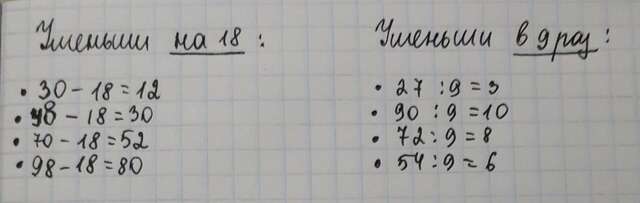 Уменьши на 18 :
• 30 - 18 = 12
• 48 - 18 = 30
• 70 - 18 = 52
• 98 - 18 = 80
Уменьши в 9 раз :
• 27 : 9 = 3
• 90 : 9 = 10
• 72 : 9 = 8
• 54 : 9 = 6